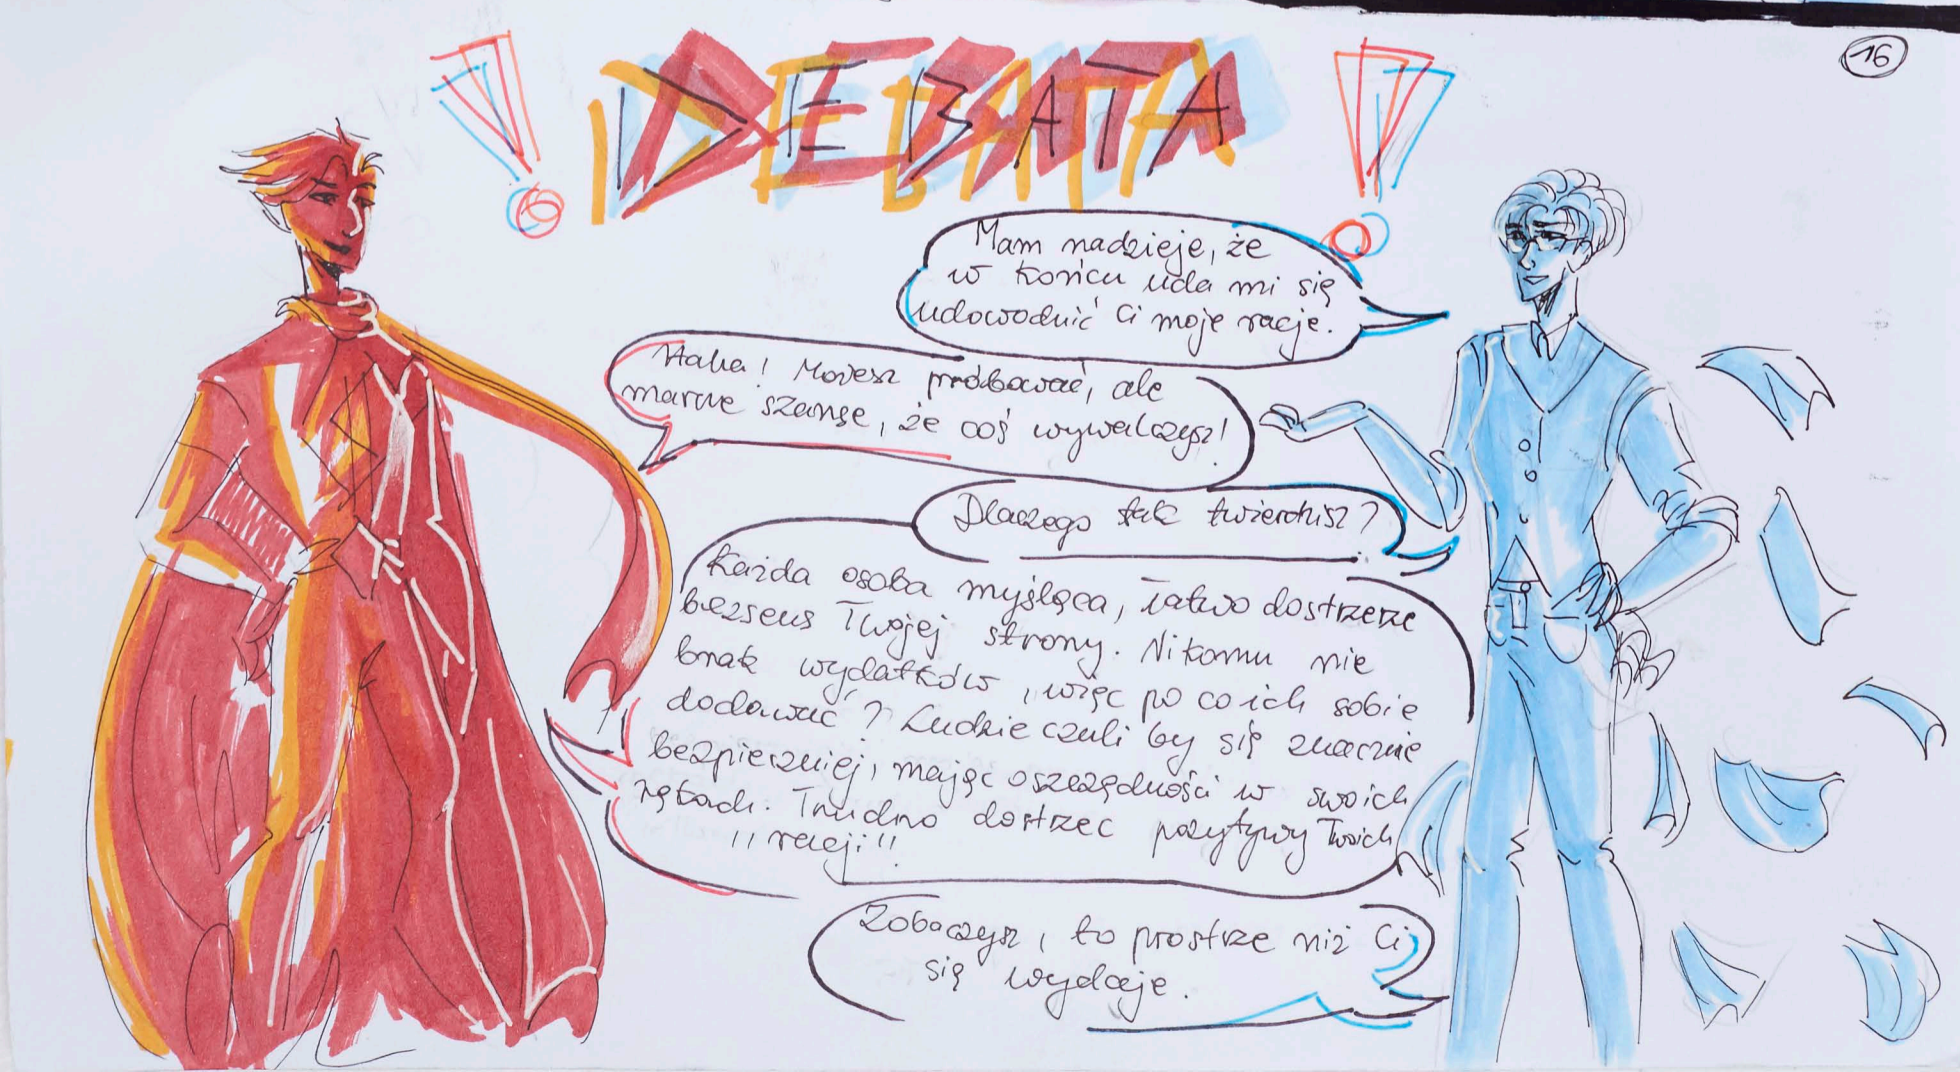 16
! DEBATA !
Mam nadzieje, że
w końcu uda mi się
udowodnić Ci moje racje.
Haha! Możesz próbować, ale
marne szanse, że coś wywalczysz!
Dlaczego tak twierdzisz?
Każda osoba myśląca, łatwo dostrzeże
bezsens Twojej strony. Nikomu nie
brak wydatków, więc po co ich sobie
dodawać? Ludzie czuli by się znacznie
bezpieczniej, mając oszczędności w swoich
rękach. Trudno dostrzec pozytywy Twoich
"racji".
Zobaczysz, to prostrze niż Ci
się wydaje.